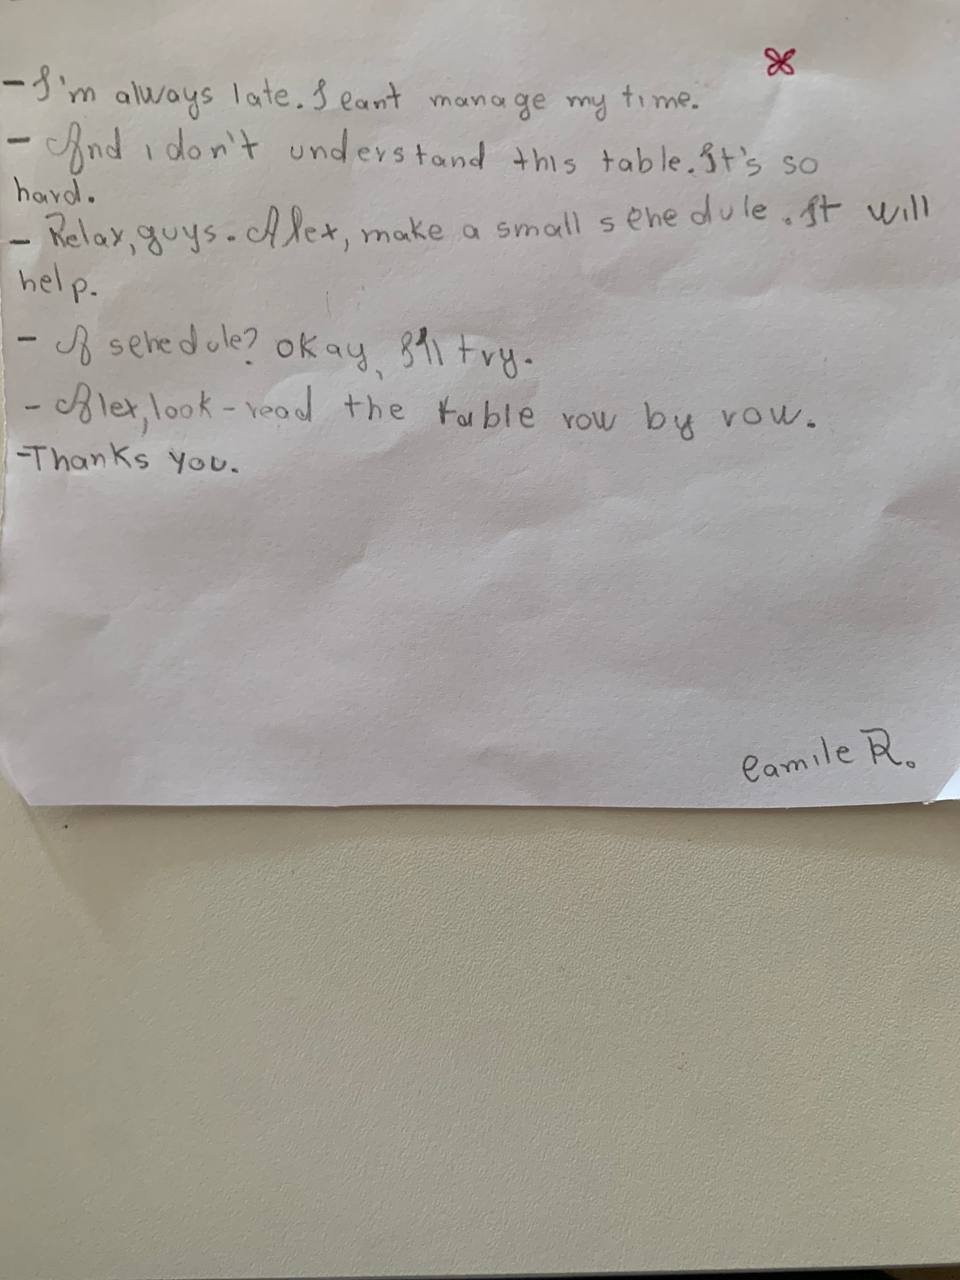 - I'm always late. I cant manage my time.
- And i don't understand this table. It's so
hard.
- Relax, guys. Alex, make a small schedule. It will
help.
- A schedule? okay, I'll try.
- Alex, look - read the table row by row.
- Thanks you.
Camile R.